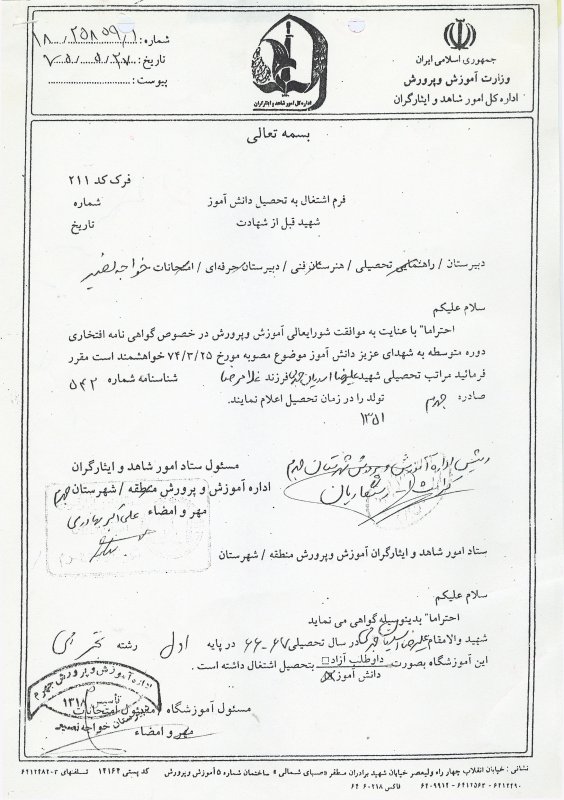 جمهوری اسلامی ایران
وزارت آموزش و پرورش
اداره کل امور شاهد و ایثارگران
اداره کل امور شاهد و ایثارگران
شماره:
تاریخ:
پیوست:
بسمه تعالی
فرک کد ۲۱۱
فرم اشتغال به تحصیل دانش آموز شماره
شهید قبل از شهادت تاریخ
دبیرستان / راهنمایی تحصیلی / هنرستان فنی / دبیرستان حرفه‌ای / امتحانات خواجه نصیر
سلام علیکم
احتراما" با عنایت به موافقت شورایعالی آموزش و پرورش در خصوص گواهی نامه افتخاری
دوره متوسطه به شهدای عزیز دانش آموز موضوع مصوبه مورخ ۷۴/۳/۲۵ خواهشمند است مقرر
فرمائید مراتب تحصیلی شهید علیرضا فرزند غلامرضا شناسنامه شماره ۵۴۲
صادره جهرم تولد ۱۳۵۱ را در زمان تحصیل اعلام نمایند.
رئیس اداره آموزش و پرورش شهرستان جهرم
مسئول ستاد امور شاهد و ایثارگران
اداره آموزش و پرورش منطقه / شهرستان جهرم
مهر و امضاء علی اکبر بهادری
ستاد امور شاهد و ایثارگران آموزش و پرورش منطقه / شهرستان
سلام علیکم
احتراما" بدینوسیله گواهی می نماید
شهید والامقام علیرضا در سال تحصیلی ۶۷-۶۶ در پایه اول رشته
این آموزشگاه بصورت داوطلب آزاد بتحصیل اشتغال داشته است.
دانش آموز
مسئول آموزشگاه / مسئول امتحانات
مهر و امضاء
اداره آموزش و پرورش جهرم
تأسیس ۱۳۱۸
دبیرستان خواجه نصیر
نشانی: خیابان انقلاب چهار راه ولیعصر خیابان شهید برادران مظفر «صبای شمالی» ساختمان شماره ۵ آموزش و پرورش کد پستی ۱۴۱۶۴ تلفنهای ۶۴۱۲۴۸۲۰۳
۶۴۱۲۲۹۰ - ۶۴۱۲۵۶۲ - ۶۴۰۹۹۱۴ فاکس ۶۴۶۰۲۱۸